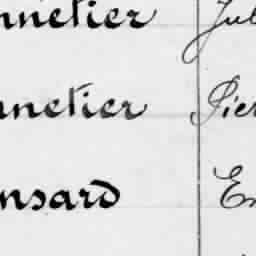 nnetier Jul
nnetier Pier
nsard En